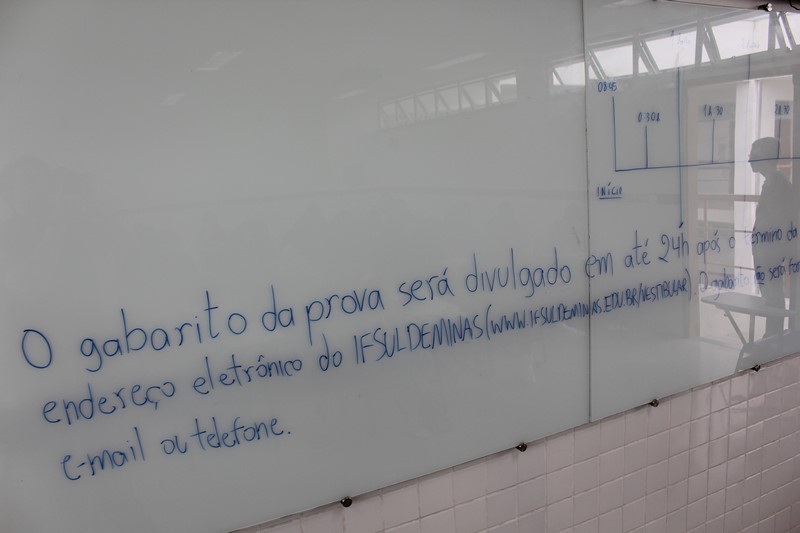 08:45
0:30h
INÍCIO
O gabarito da prova será divulgado em até 24h após o término da
endereço eletrônico do IFSULDEMINAS (WWW.IFSULDEMINAS.EDU.BR/VESTIBULAR). O gabarito não será
e-mail ou telefone.